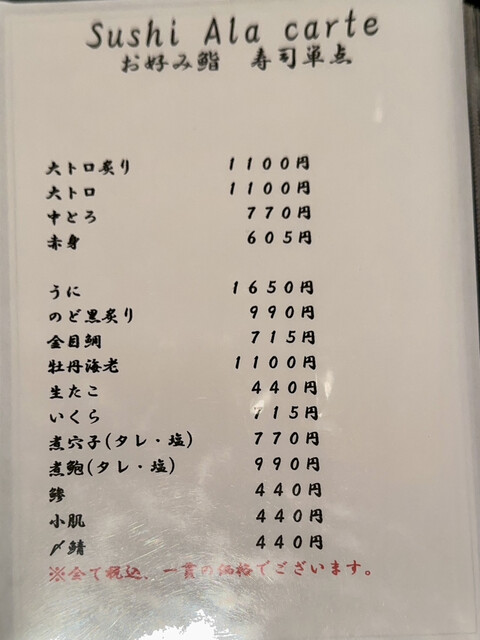 Sushi Ala carte
お好み鮨　寿司単点
大トロ炙り 1100円
大トロ 1100円
中とろ 770円
赤身 605円
うに 1650円
のど黒炙り 990円
金目鯛 715円
牡丹海老 1100円
生たこ 440円
いくら 715円
煮穴子(タレ・塩) 770円
煮鮑(タレ・塩) 990円
鯵 440円
小肌 440円
〆鯖 440円
※全て税込、一貫の価格でございます。